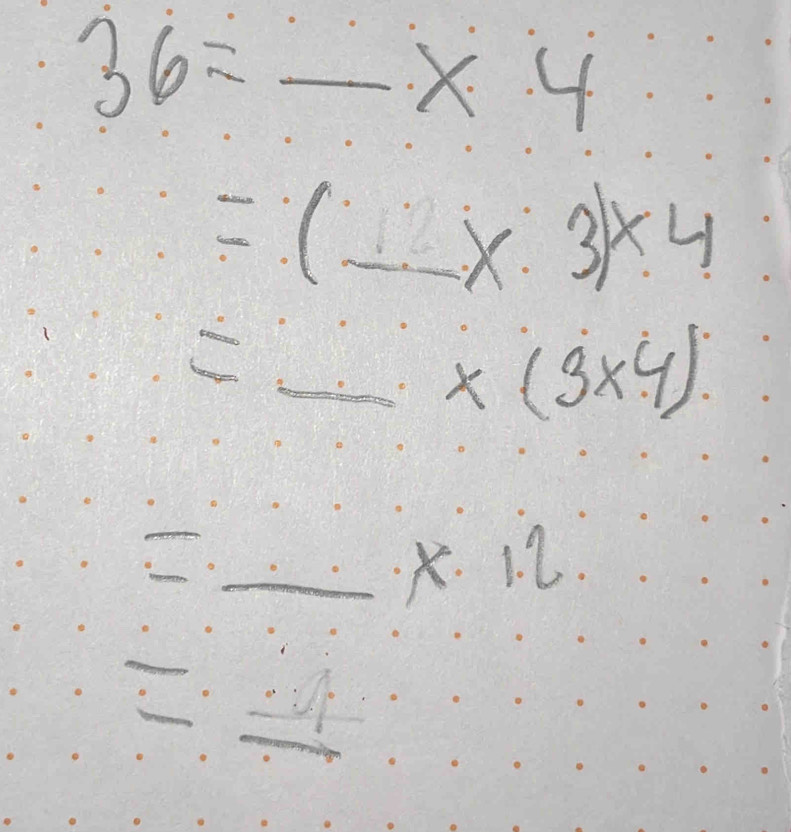 36 = ___ × 4
= ( 12 × 3) × 4
= ___ × (3×4)
= ___ × 12
= ___